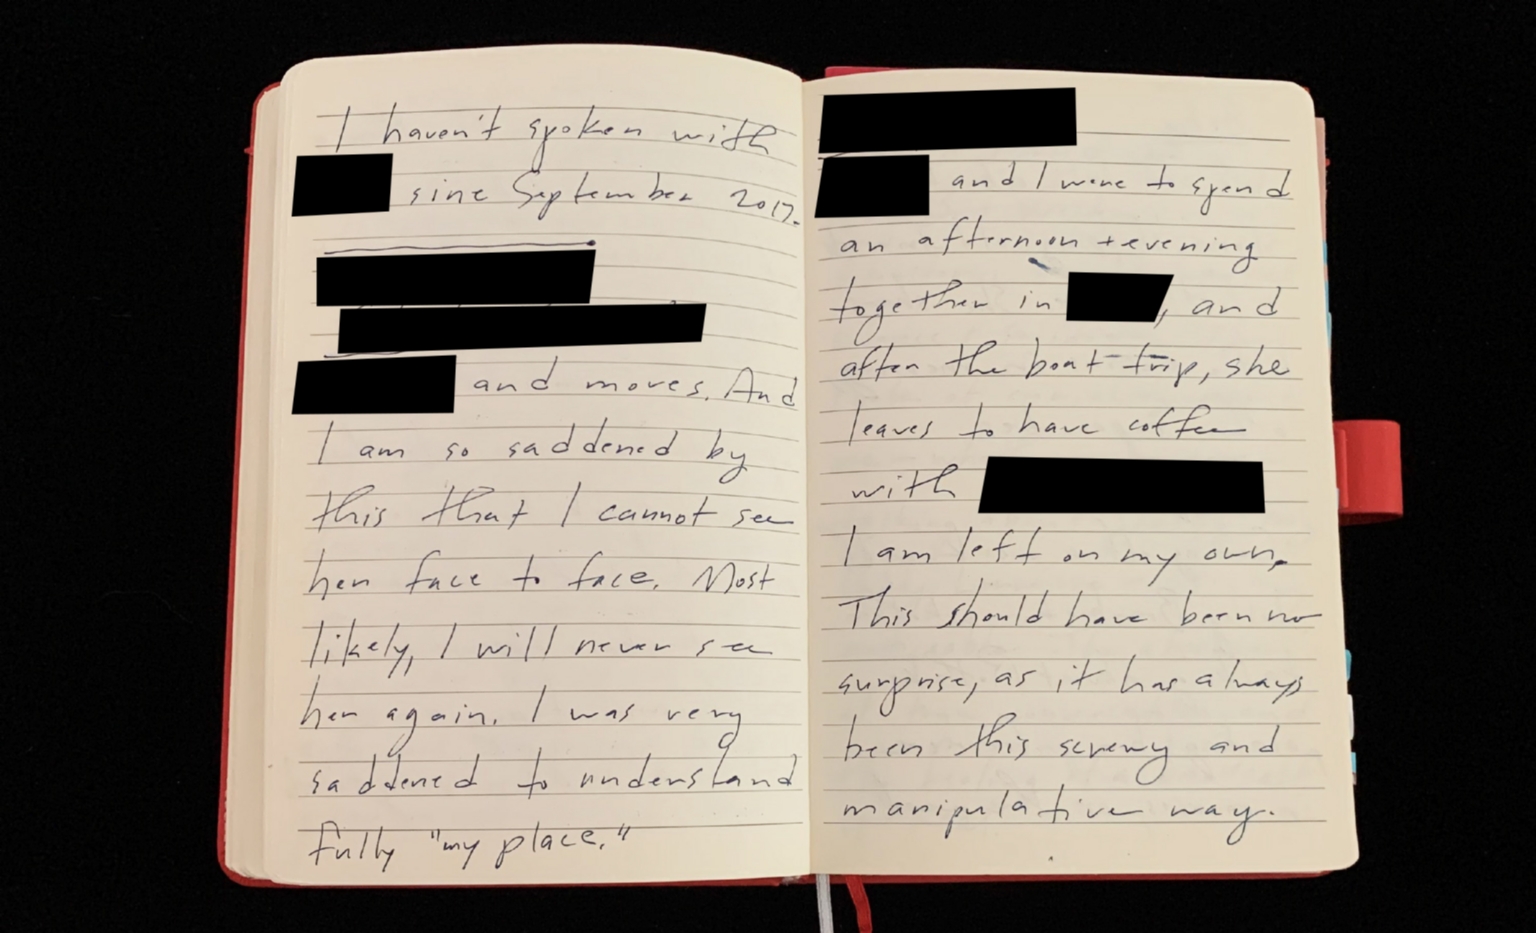 I haven't spoken with
sinc September 2017.
and moves. And
I am so saddened by
this that I cannot see
her face to face. Most
likely, I will never see
her again. I was very
saddened to understand
fully "my place."
and I were to spend
an afternoon + evening
together in , and
after the boat trip, she
leaves to have coffee
with
I am left on my own.
This should have been no
surprise, as it has always
been this screwy and
manipulative way.